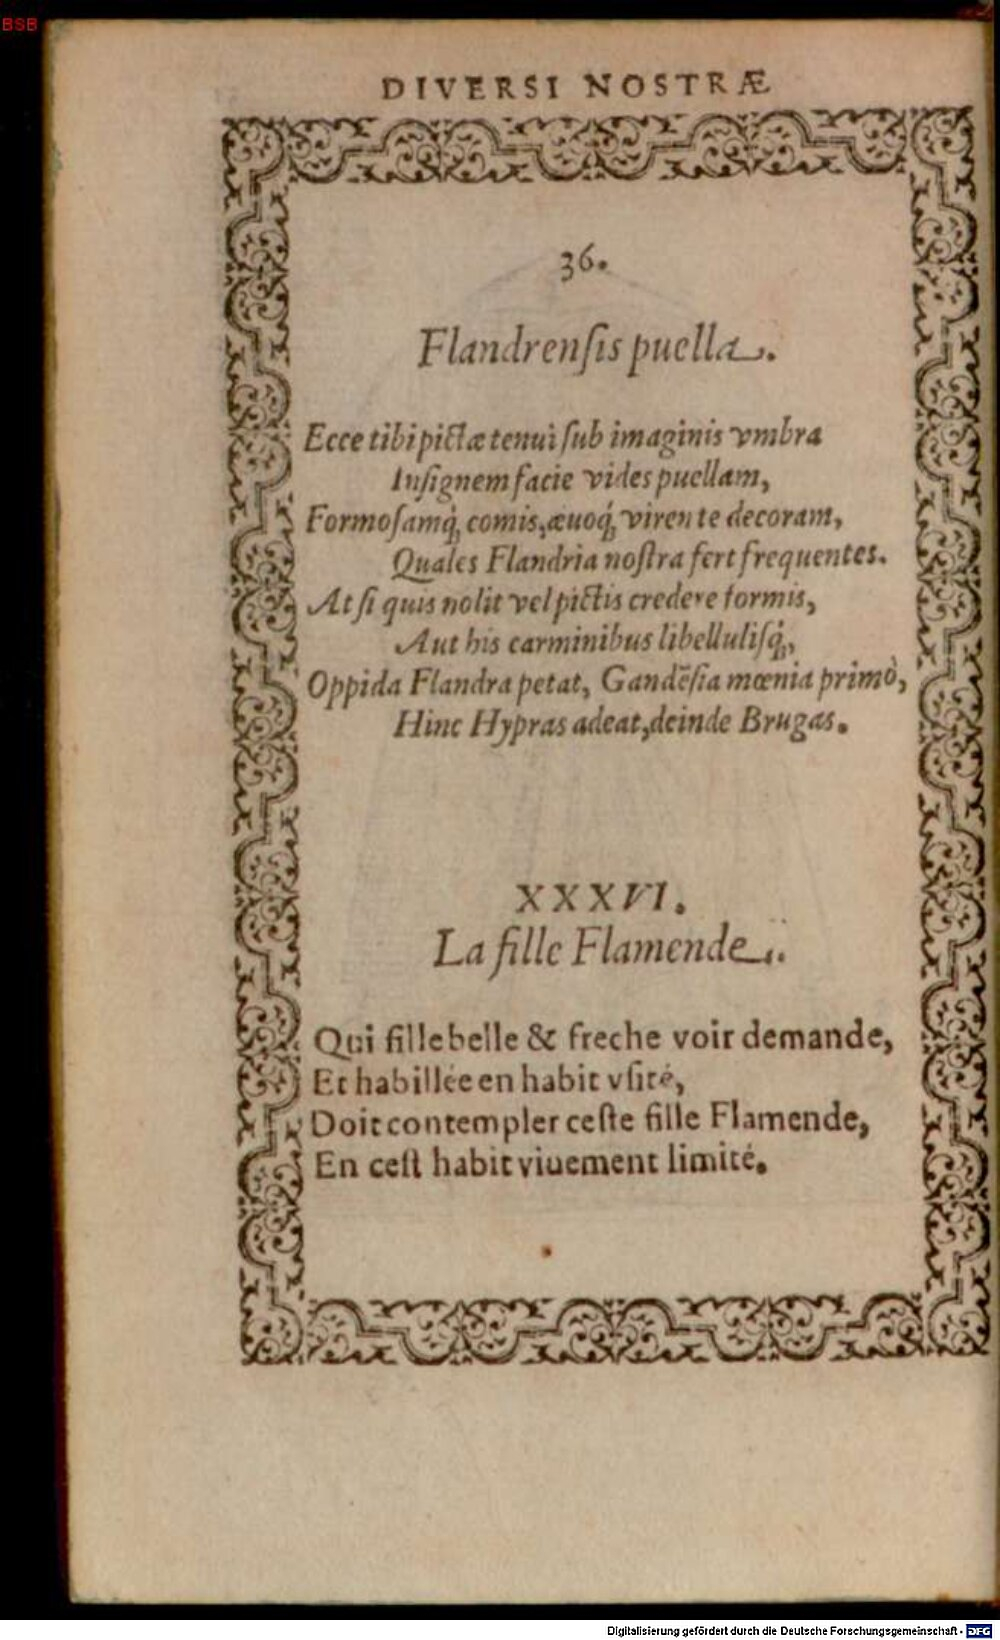 BSB
DIVERSI NOSTRÆ
36.
Flandrenſis puella.
Ecce tibi pictæ tenui ſub imaginis vmbra
Inſignem facie vides puellam,
Formoſamq́; comis, æuoq́; virente decoram,
Quales Flandria noſtra fert frequentes.
At ſi quis nolit vel pictis credere formis,
Aut his carminibus libelluliſq́;,
Oppida Flandra petat, Gandēſia mœnia primò,
Hinc Hypras adeat, deinde Brugas.
XXXVI.
La fille Flamende.
Qui fille belle & freche voir demande,
Et habillée en habit vſité,
Doit contempler ceſte fille Flamende,
En ceſt habit viuement limité.
Digitalisierung gefördert durch die Deutsche Forschungsgemeinschaft - DFG